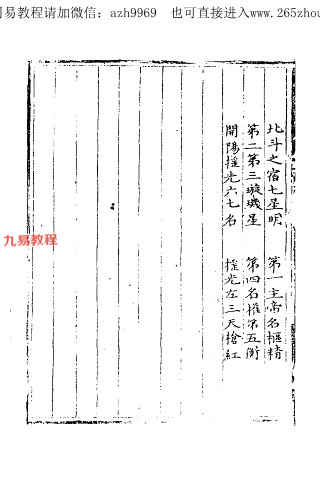 易教程请加微信：azh9969 也可直接进入www.265zhou
北斗之宿七星明 第一主帝名樞精
第二第三璇璣星 第四名權第五衡
開陽搖光六七名 搖光左三天槍紅
九易教程